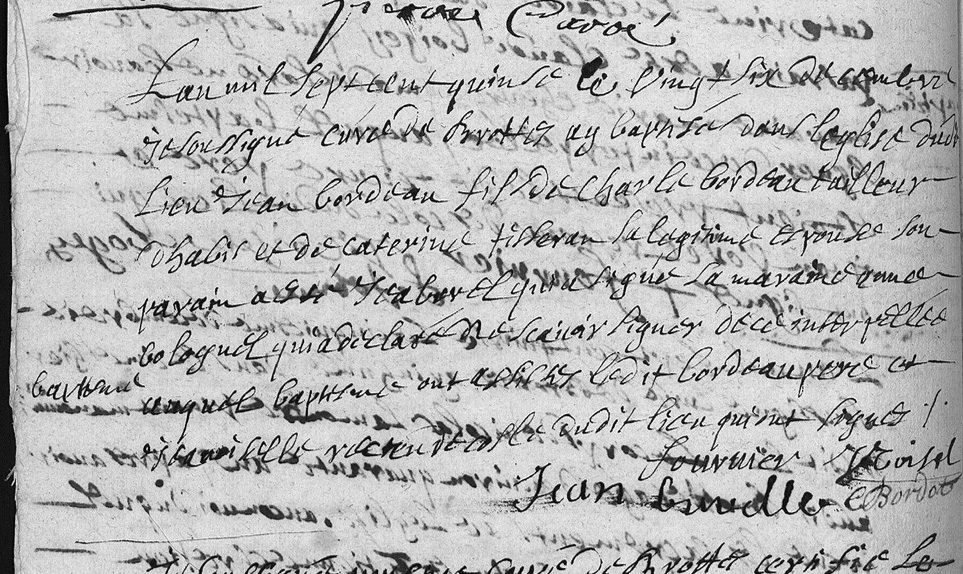 pierre Carré
Lan mil sept cent quinse le vingt six decembre
je soussigné curé de brottes ay baptisé dans leglise dudt
lieu Jean bordeau fils de charle bordeau tailleur
dhabis et de caterine tisseran sa legitime epouse son
parain a esté qui a signé sa maraine anne
bologuel qui a declaré ne scavoir signer de ce interpellée
bapteme auquel baptesme ont assistes ledit bordeau pere et
jean recteur decolle dudit lieu qui ont signes /.
fournier
Jean C Bordot
curé de brottes certifie le